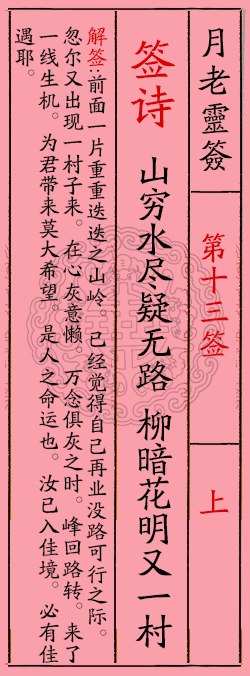 月老靈簽
第十三签
上
签诗 山穷水尽疑无路 柳暗花明又一村
解签:前面一片重重迭迭之山岭。已经觉得自己再业没路可行之际。
忽尔又出现一村子来。在心灰意懒。万念俱灰之时。峰回路转。来了
一线生机。为君带来莫大希望。是人之命运也。汝已入佳境。必有佳
遇耶。